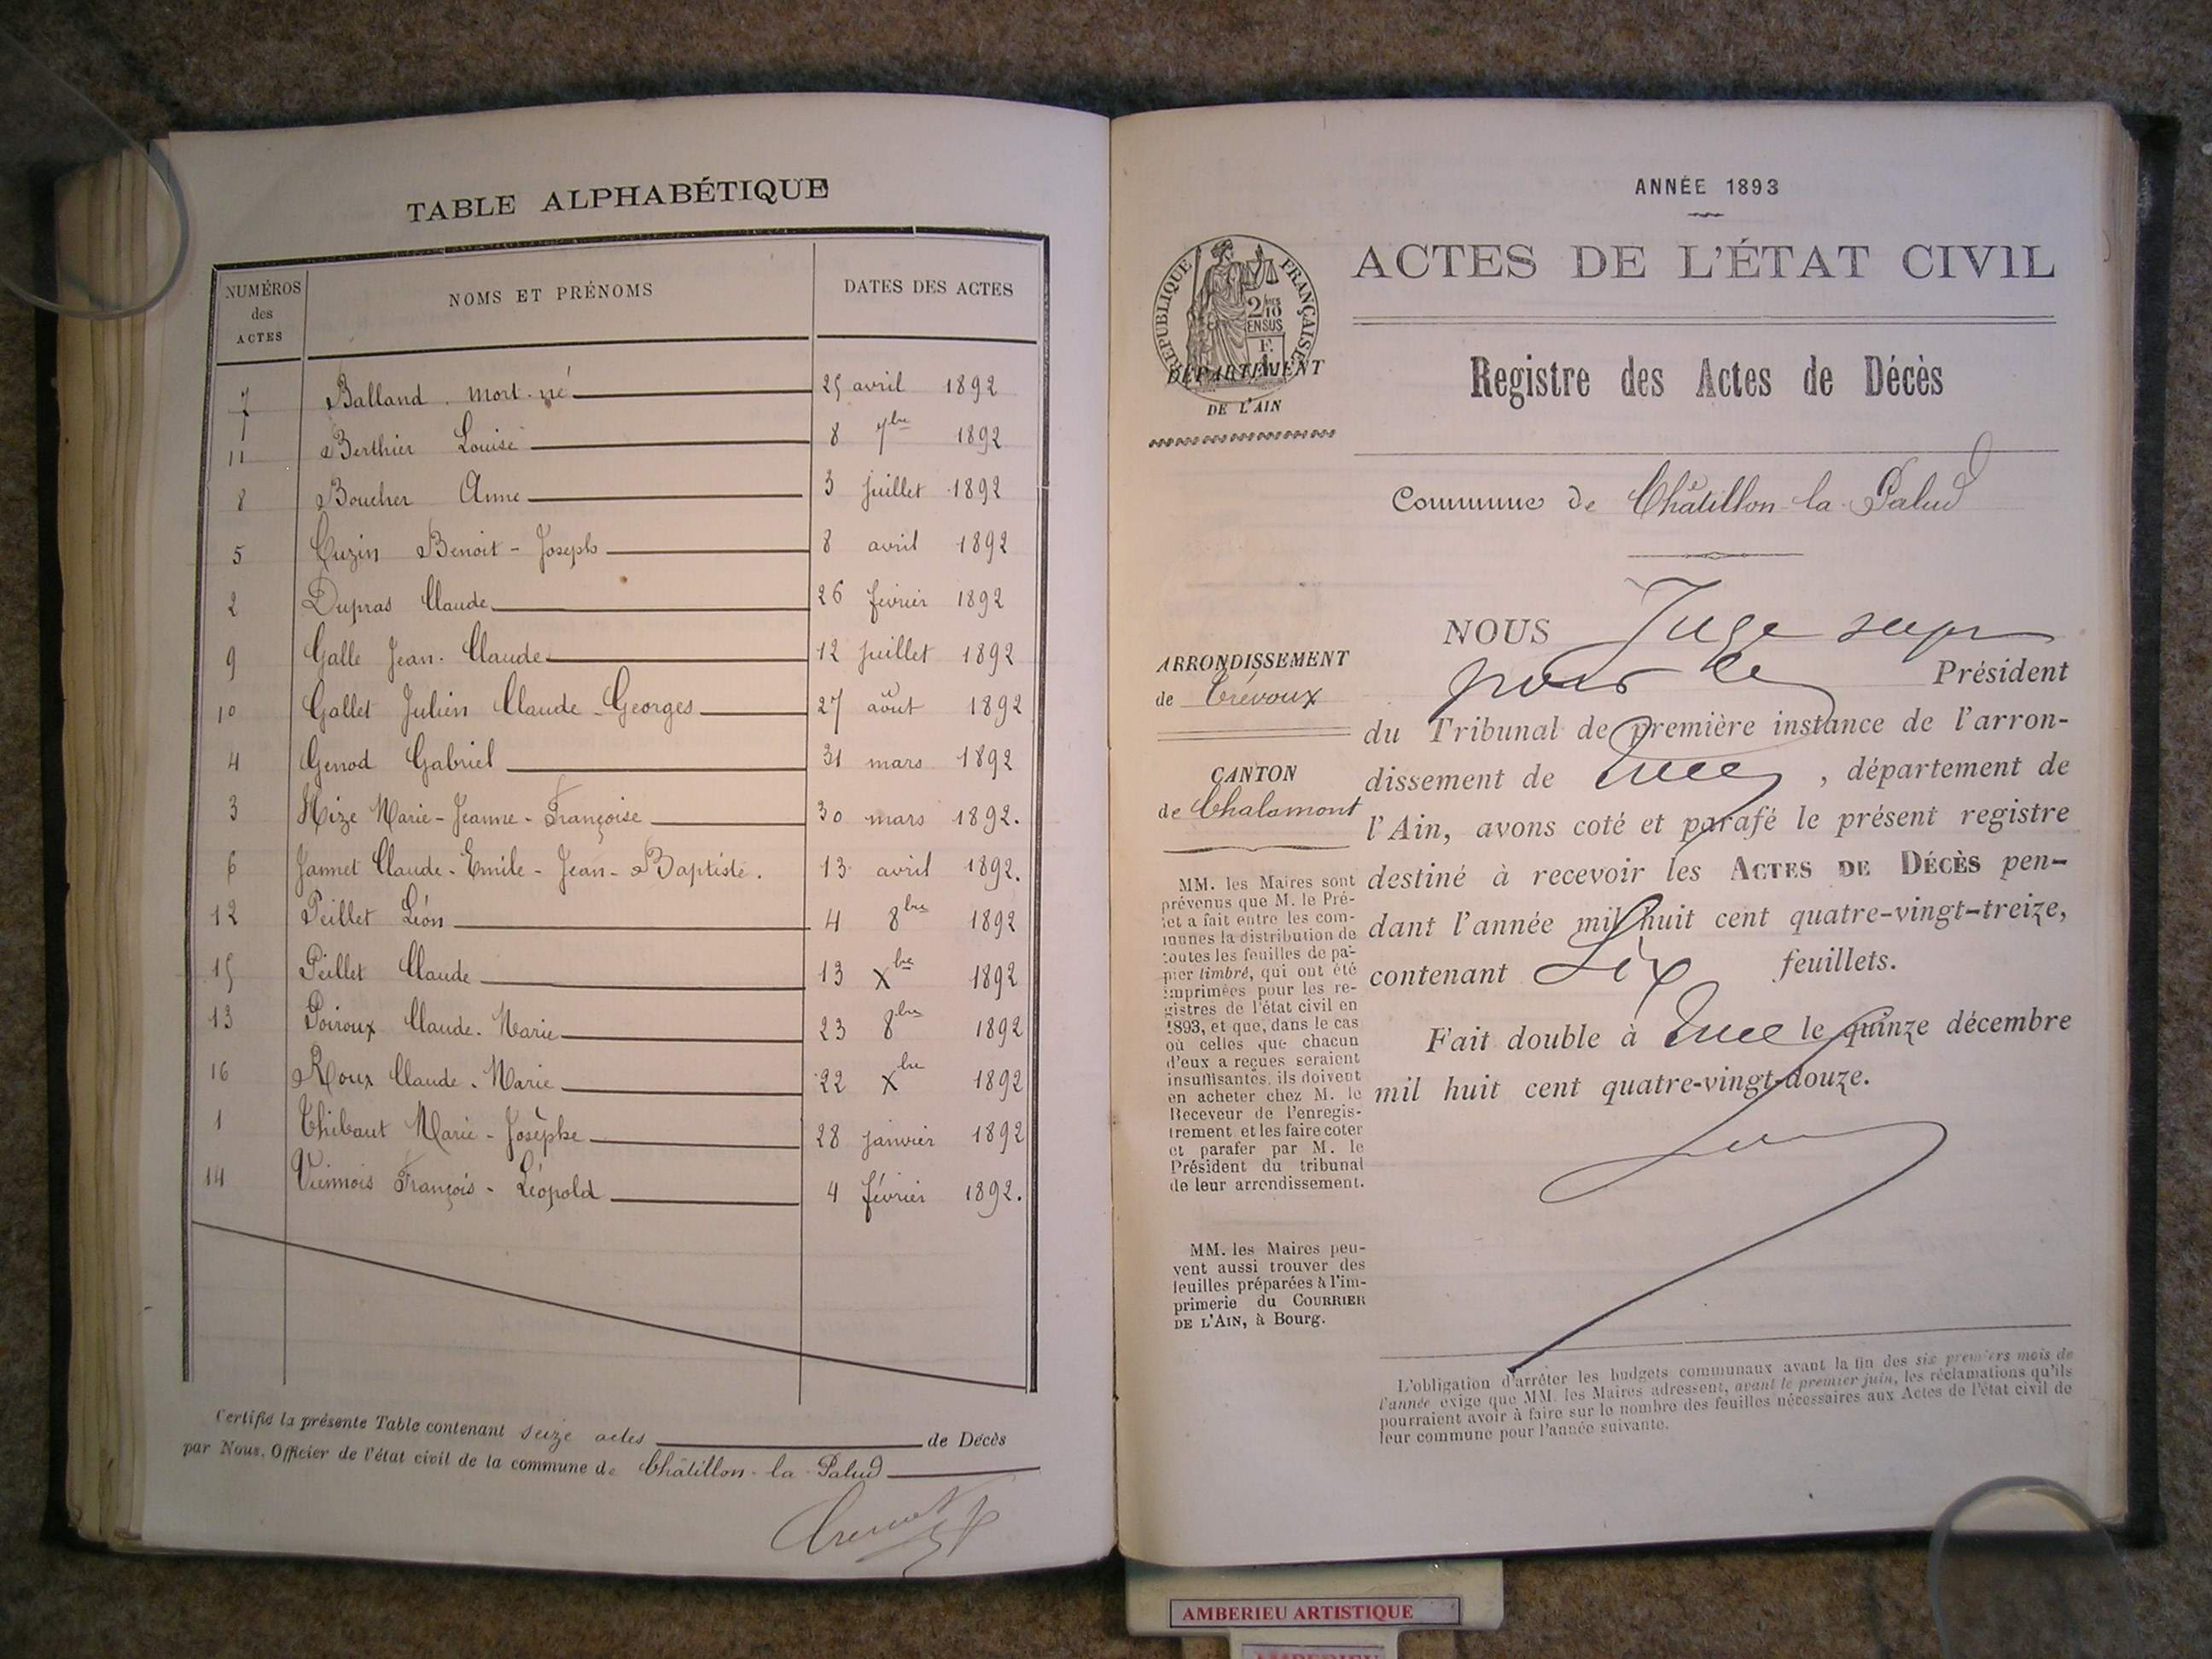 TABLE ALPHABÉTIQUE
NUMÉROS des ACTES NOMS ET PRÉNOMS DATES DES ACTES
7 Balland. Mort-né 25 avril 1892
11 Berthier Louise 8 7bre 1892
8 Boucher Anne 3 juillet 1892
5 Cuzin Benoit-Joseph 8 avril 1892
2 Dupras Claude 26 février 1892
9 Galle Jean-Claude 12 juillet 1892
10 Gallet Julien Claude-Georges 27 août 1892
4 Genod Gabriel 31 mars 1892
3 Hize Marie-Jeanne-Françoise 30 mars 1892.
6 Jannet Claude-Emile-Jean-Baptiste. 13 avril 1892.
12 Peillet Léon 4 8bre 1892
15 Peillet Claude 13 Xbre 1892
13 Poiroux Claude-Marie 23 8bre 1892
16 Roux Claude-Marie 22 Xbre 1892
1 Thibaut Marie-Josèphe 28 janvier 1892
14 Viennois François-Léopold 4 février 1892.
Certifié la présente Table contenant seize actes de Décès
par Nous, Officier de l'état civil de la commune de Châtillon-la-Palud
ANNÉE 1893
ACTES DE L'ÉTAT CIVIL
RÉPUBLIQUE FRANÇAISE
2/10 EN SUS
DÉPARTEMENT
DE L'AIN
Registre des Actes de Décès
Commune de Châtillon-la-Palud
ARRONDISSEMENT
de Trévoux
CANTON
de Chalamont
MM. les Maires sont
prévenus que M. le Pré-
fet a fait entre les com-
munes la distribution de
toutes les feuilles de pa-
pier timbré, qui ont été
imprimées pour les re-
gistres de l'état civil en
1893, et que, dans le cas
où celles que chacun
d'eux a reçues seraient
insuffisantes, ils doivent
en acheter chez M. le
Receveur de l'enregis-
trement et les faire coter
et parafer par M. le
Président du tribunal
de leur arrondissement.
MM. les Maires peu-
vent aussi trouver des
feuilles préparées à l'im-
primerie du COURRIER
DE L'AIN, à Bourg.
NOUS Juge sup
pour le Président
du Tribunal de première instance de l'arron-
dissement de , département de
l'Ain, avons coté et parafé le présent registre
destiné à recevoir les ACTES DE DÉCÈS pen-
dant l'année mil huit cent quatre-vingt-treize,
contenant Six feuillets.
Fait double à le quinze décembre
mil huit cent quatre-vingt-douze.
L'obligation d'arrêter les budgets communaux avant la fin des six premiers mois de
l'année exige que MM. les Maires adressent, avant le premier juin, les réclamations qu'ils
pourraient avoir à faire sur le nombre des feuilles nécessaires aux Actes de l'état civil de
leur commune pour l'année suivante.
AMBERIEU ARTISTIQUE
AMBERIEU